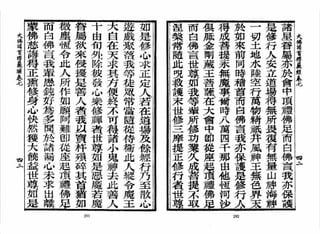 諸星眷屬亦於會中頂禮佛足而白佛言我亦保護
是修行人安立道場得無所畏復有無量山神海神
一切土地水陸空行萬物精祇并風神王無色界天
於如來前同時稽首而白佛言我亦保護是修行人
得成菩提永無魔事爾時八萬四千那由他恒河沙
俱胝金剛藏王菩薩在大會中即從座起頂禮佛足
而白佛言世尊如我等輩所修功業久成菩提不取
涅槃常隨此呪救護末世修三摩提正修行者世尊
如是修心求正定人若在道場及餘經行乃至散心
遊戲聚落我等徒眾常當隨從侍衛此人縱令魔王
大自在天求其方便終不可得諸小鬼神去此善人
十由旬外除彼發心樂修禪者世尊如是惡魔若魔
眷屬欲來侵擾是善人者我以寶杵殞碎其首猶如
微塵恒令此人所作如願阿難即從座起頂禮佛足
而白佛言我輩愚鈍好為多聞於諸漏心未求出離
蒙佛慈誨得正熏修身心快然獲大饒益世尊如是